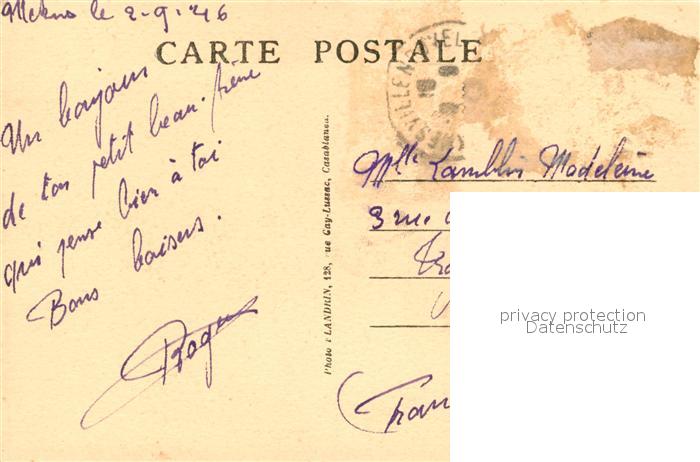 Meknes le 2-9-46
CARTE POSTALE
Un bonjour
de ton petit beau-frère
qui pense bien à toi
Bons baisers.
Roger
Photo FLANDRIN, 128, rue Gay-Lussac, Casablanca.
MEKNES VILLE NOUVELLE
Mlle Lamblin Madeleine
3 rue
privacy protection
Datenschutz